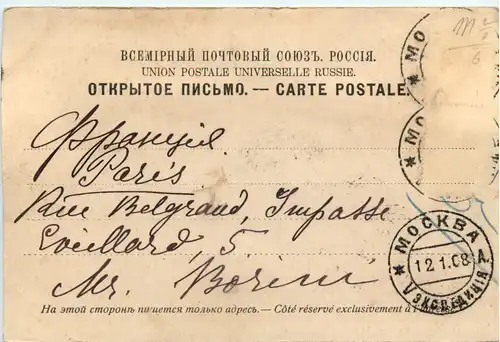 ВСЕМІРНЫЙ ПОЧТОВЫЙ СОЮЗЪ. РОССІЯ.
UNION POSTALE UNIVERSELLE RUSSIE.
ОТКРЫТОЕ ПИСЬМО. — CARTE POSTALE.
Франція
Paris
Rue Belgrand, Impasse
5.
Mr.
На этой сторонѣ пишется только адресъ. — Côté réservé exclusivement à l'
МО
МО
МОСКВА
12.1.08
V ЭКСПЕДИЦІЯ А.